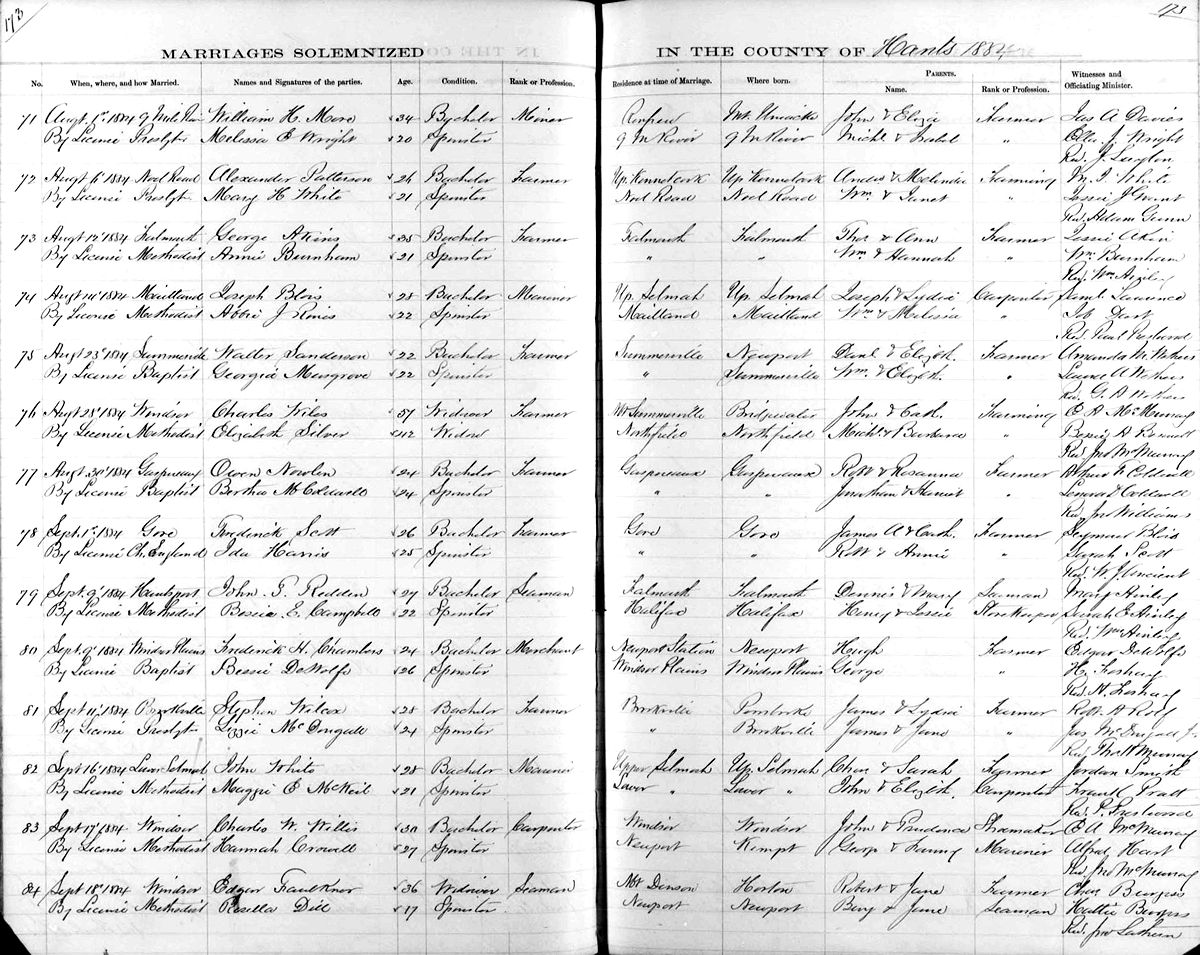 173
173
MARRIAGES SOLEMNIZED IN THE COUNTY OF Hants 1884
No. When, where, and how Married. Names and Signatures of the parties. Age. Condition. Rank or Profession. Residence at time of Marriage. Where born. PARENTS. Name. Rank or Profession. Witnesses and Officiating Minister.
71 Augt. 1st 1884 9 Mile River William H. Moro 34 Bachelor Miner Renfrew Mt. Uniacke John & Eliza Farmer Jas A Davies
By License Presbyt. Melissa E Wright 20 Spinster 9 M River 9 M River Michl. & Isabel " Ella J. Wright
Rev. J. Layton
72 Augt 6th 1884 Noel Road Alexander Patterson 26 Bachelor Farmer Up. Kennetcook Up. Kennetcook & Melinda Farming White
By License Presbyt. Mary H White 21 Spinster Noel Road Noel Road Wm. & Janet " J Grant
Rev. Adam Gunn
73 Augt 12th 1884 Falmouth George Akins 35 Bachelor Farmer Falmouth Falmouth Thos & Ann Farmer Akin
By License Methodist Annie Burnham 21 Spinster " " Wm & Hannah " Wm. Burnham
Rev. Wm.
74 Augt 1884 Maitland Joseph Blois 28 Bachelor Mariner Up. Selmah Up. Selmah Joseph & Lydia Carpenter Saml.
By License Methodist Abbie J 22 Spinster Maitland Maitland Wm & Melissa "
Rev. Paul Prestwood
75 Augt 23d 1884 Summerville Walter Sanderson 22 Bachelor Farmer Summerville Newport & Elizth. Farmer Amanda
By License Baptist Georgia Musgrove 22 Spinster " Summerville Wm. & Elizth. "
Rev.
76 Augt 28th 1884 Windsor Charles Wiles 57 Widower Farmer Mt Summerville Bridgewater John & Cath. Farming C A McMurray
By License Methodist Elizabeth Silver 42 Widow Northfield Northfield Michl. & Barbara " Bessie A
Rev Jno McMurray
77 Augt. 30th 1884 Gaspereaux Owen Nowlen 24 Bachelor Farmer Gaspereaux Gaspereaux Robt & Rosanna Farmer
By License Baptist Bertha M Coldwell 24 Spinster " " Jonathan & Harriet " Coldwell
Rev. Jno Williams
78 Sept. 1st 1884 Gore Frederick Scott 26 Bachelor Farmer Gore Gore James A & Cath. Farmer Seymour Blois
By License Ch. England Ida Harris 25 Spinster " " Robt & Annie " Sarah Scott
Rev. W. J. Ancient
79 Sept. 9th 1884 Hantsport John Redden 27 Bachelor Seaman Falmouth Falmouth Dennis & Mary Seaman Mary Ainley
By License Methodist Bessie E. Campbell 22 Spinster Halifax Halifax Henry & Storekeeper Sarah E Ainley
Rev. Wm Ainley
80 Sept. 9th 1884 Windsor Plains Frederick H. Chambers 24 Bachelor Merchant Newport Station Newport Hugh Farmer Edgar DeWolfe
By License Baptist Bessie DeWolfe 26 Spinster Windsor Plains Windsor Plains George " H. Foshay
Rev. H. Foshay
81 Sept 1884 Brookville Stephen Wilcox 28 Bachelor Farmer Brookville Pembroke James & Lydia Farmer Robt. A
By License Presbyt Lizzie McDougall 24 Spinster " Brookville James & Jane " Jas McDougall
Rev. Murray
82 Sept 16th 1884 Lower Selmah John White 28 Bachelor Mariner Upper Selmah Up. Selmah Chas & Sarah Farmer Jordan Smith
By License Methodist Maggie E McNeil 21 Spinster Lower " Lower " John & Elizth. Carpenter Pratt
Rev. P. Prestwood
83 Sept 17th 1884 Windsor Charles W. Willis 30 Bachelor Carpenter Windsor Windsor John & Prudence Shoemaker C A McMurray
By License Methodist Hannah Crowell 27 Spinster Newport Kempt George & Fanny Mariner Alfred Hart
Rev. Jno McMurray
84 Sept 18th 1884 Windsor Edgar Faulkner 36 Widower Seaman Mt Denson Horton Robert & Jane Farmer Chas Burgess
By License Methodist Rosella Dill 17 Spinster Newport Newport Benj & Jane Seaman Hattie Burgess
Rev. Jno Lathern